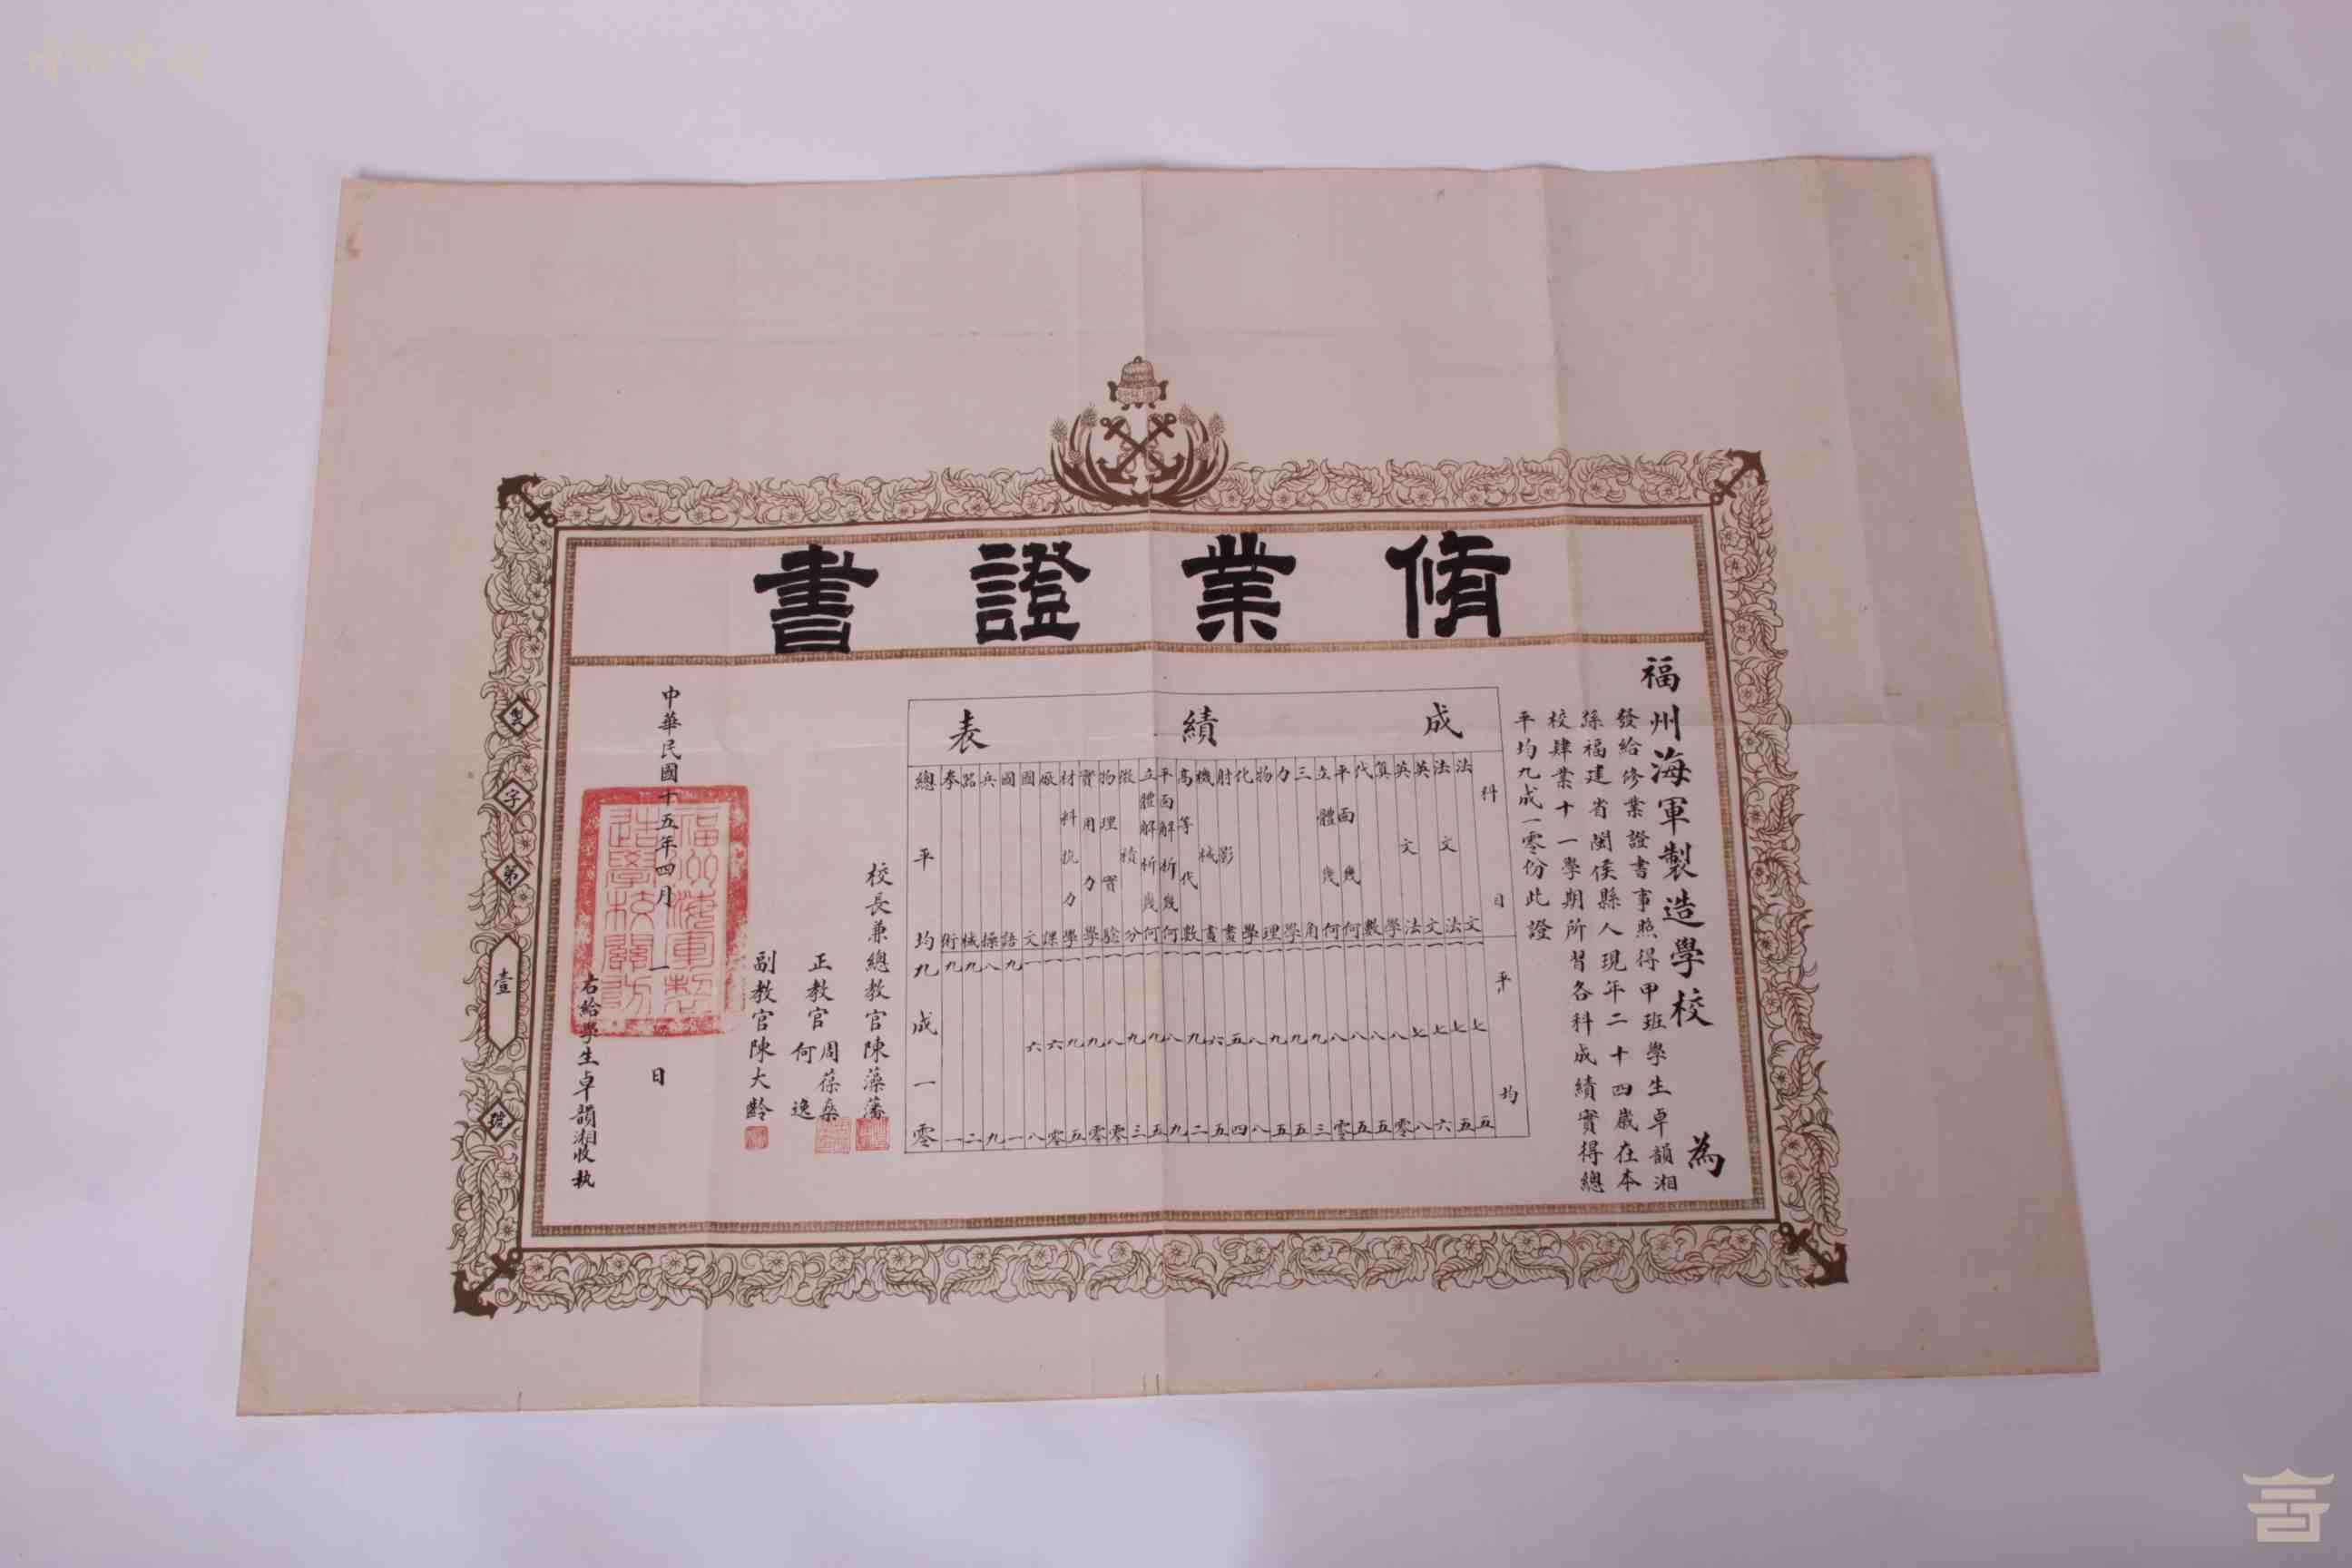 脩業證書
福州海軍製造學校為
發給修業證書事照得甲班學生卓韻湘
係福建省閩侯縣人現年二十四歲在本
校肄業十一學期所習各科成績實得總
平均九成一零份此證
成績表
科目 平均
法文 一七五
法文法 一七五
英文 一七六
英文法 一七八
算學 一八零
代數 一八五
平面幾何 一八五
立體幾何 一八零
三角 一九三
力學 一九五
物理 一九五
化學 一八八
射影畫 一五四
機械畫 一六五
高等代數 一九二
平面解析幾何 一八九
立體解析幾何 一九五
微積分 一九三
物理實驗 一八零
實用力學 一九零
材料抗力學 一九五
廠課 一六零
國文 一六八
國語 九一
兵操 八九
器械 九二
拳術 九一
總平均 九成一零
校長兼總教官陳藻藩
正教官周葆燊
何逸
副教官陳大齡
中華民國十五年四月一日
福州海軍製造學校關防
右給學生卓韻湘收執
製字第壹號